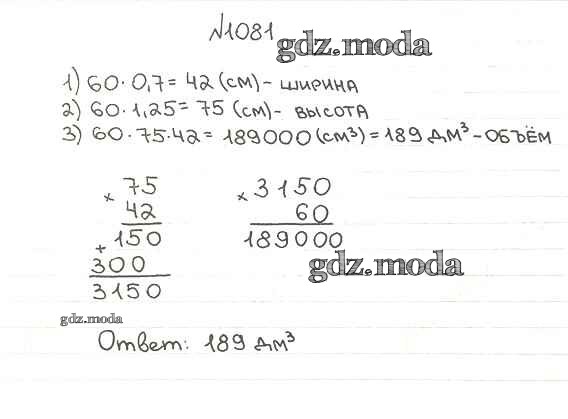 №1081
gdz.moda
1) 60·0,7=42 (см)-ширина
2) 60·1,25=75 (см)-высота
3) 60·75·42=189000(см³)=189 дм³-объём
× 75
42
+ 150
300
3150
× 3150
60
189000
gdz.moda
gdz.moda
Ответ: 189 дм³